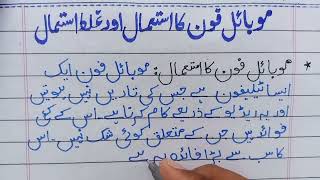 موبائل فون کا استعمال اور غلط استعمال
* موبائل فون کا استعمال: موبائل فون ایک
ایسا ٹیلیفون ہے جس کی تاریں نہیں ہوتیں
اور یہ ریڈیو کے ذریعے کام کرتا ہے۔ اس کے کئی
فوائد ہیں جس کے متعلق کوئی شک نہیں۔ اس
کا سب سے بڑا فائدہ یہ ہے